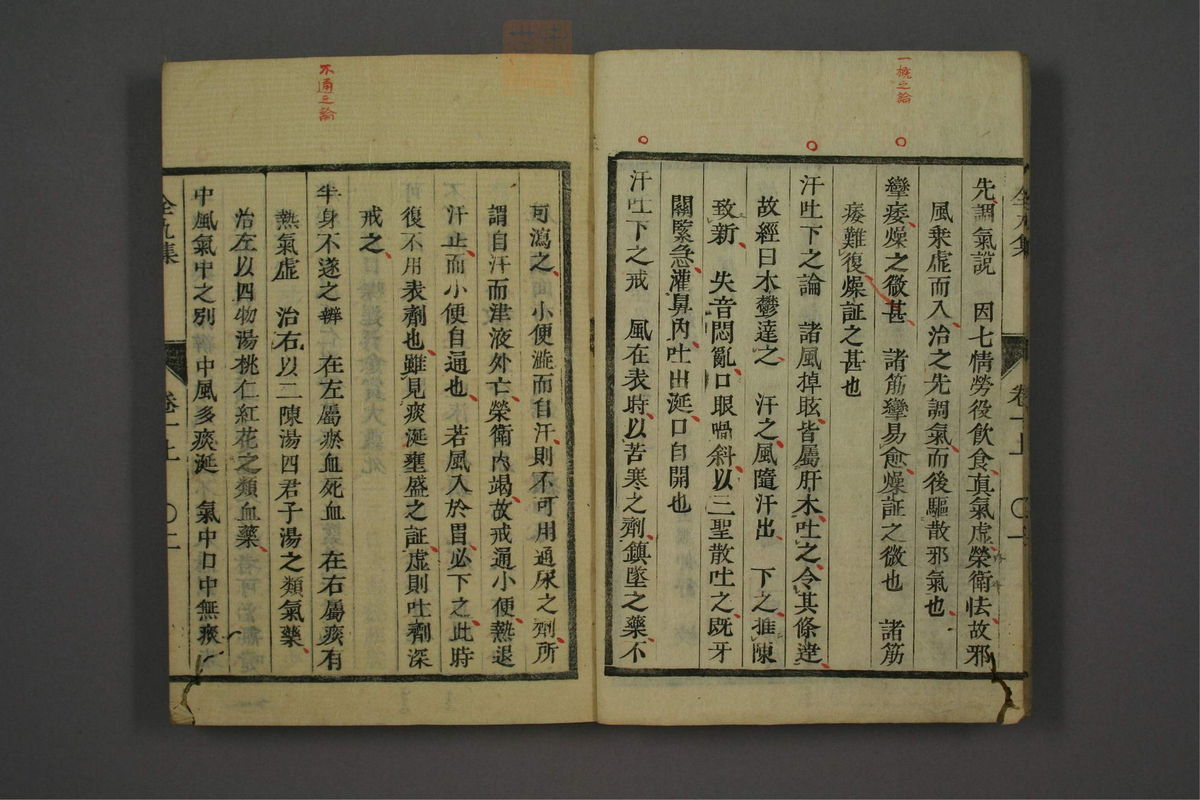 一概之論
先調氣説　因七情勞役飲食真氣虛榮衛怯故邪
風乘虛而入治之先調氣而後驅散邪氣也
攣痿燥之微甚　諸筋攣易愈燥証之微也　諸筋
痿難復燥証之甚也
汗吐下之論　諸風掉眩皆屬肝木吐之令其條達
故經曰木鬱達之　汗之風隨汗出　下之推陳
致新　失音悶亂口眼喎斜以三聖散吐之既牙
關緊急灌鼻內吐出涎口自開也
汗吐下之戒　風在表時以苦寒之劑鎮墜之藥不
不通之論
可瀉之　小便澁而自汗則不可用通尿之劑所
謂自汗而津液外亡榮衛內竭故戒通小便熱退
汗止而小便自通也　若風入於胃必下之此時
復不用表劑也雖見痰涎壅盛之証虛則吐劑深
戒之
半身不遂之辨　在左屬瘀血死血　在右屬痰有
熱氣虛　治右以二陳湯四君子湯之類氣藥
治左以四物湯桃仁紅花之類血藥
中風氣中之別　中風多痰涎　氣中口中無痰
全九集
卷一上